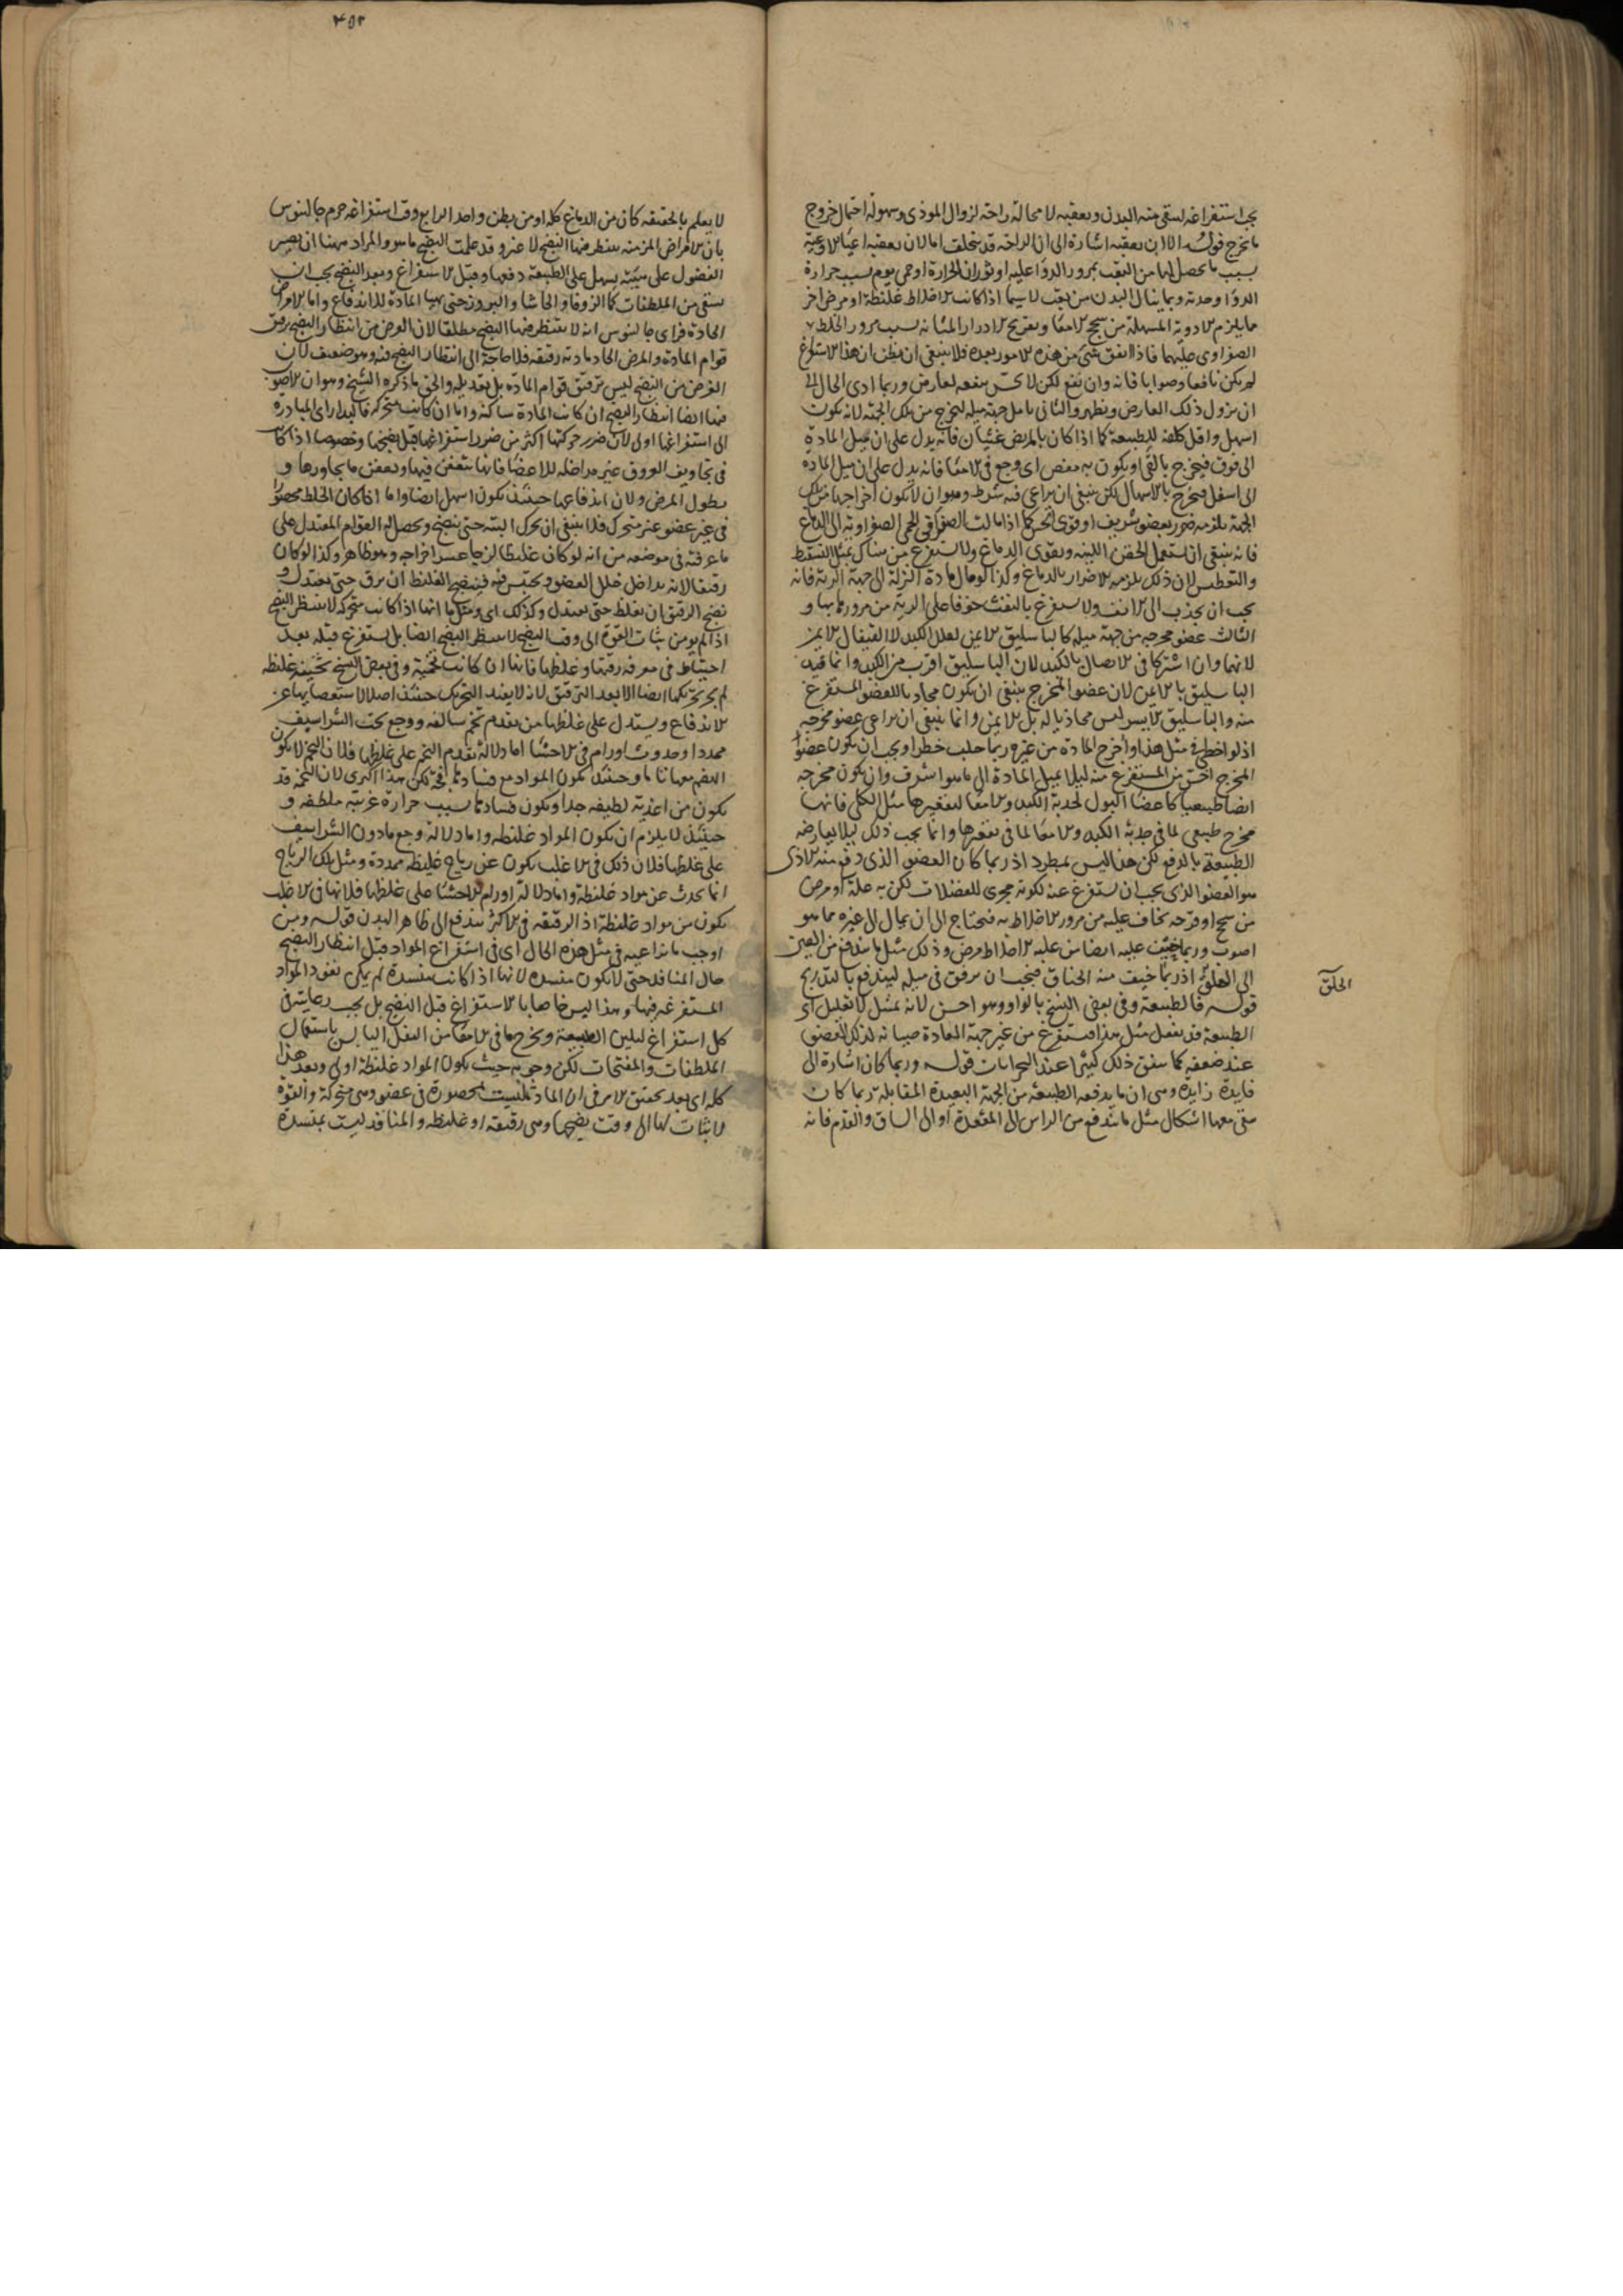 يجب استفراغه لينقى منه البدن ويعقبه لا محالة راحة لزوال الموذى وسهولة احتمال خروج
ما يخرج قوله الا ان يعقبه اشارة الى ان الراحة قد تتخلف اما لان يعقبه اعياء الاوعية
بسبب ما يحصل لها من التعب بمرور الدوا عليها او ثوران الحرارة او حمى يوم بسبب حرارة
الدوا وحدته وبما ينال البدن من تعب لا سيما اذا كانت الاخلاط غليظة او مرض اخر
مما يلزم الادوية المسهلة من سحج الامعا وتقريح الادرار المثانة بسبب مرور الخلط
الصفراوى عليهما فاذا اتفق شى من هذه الامور بعده فلا ينبغى ان يظن ان هذا الاستفراغ
لم يكن نافعا وصوابا فانه وان نفع لكن لا يحس بنفعه لعارض وربما ادى الحال الى
ان يزول ذلك العارض ويظهر والثانى تامل جهة ميله ليخرج من تلك الجهة لانه يكون
اسهل واقل كلفة للطبيعة كما اذا كان بالمريض غثيان فانه يدل على ان ميل المادة
الى فوق فيخرج بالقى او يكون به مغص اى وجع فى الامعا فانه يدل على ان ميل المادة
الى اسفل فيخرج بالاسهال لكن ينبغى ان يراعى فيه شرط وهو ان لا يكون اخراجها من تلك
الجهة يلزمه ضرر بعضو شريف او قوى الحس كما اذا مالت الصفرا فى الحمى الصفراوية الى الدماغ
فانه ينبغى ان تستعمل الحقن اللينة ويقوى الدماغ ولا يستفرغ من هناك بمثل التسعط
والتعطيس لان ذلك يلزمه الاضرار بالدماغ وكذا لو مال مادة النزلة الى جهة الرية فانه
يجب ان يجذب الى الانف ولا يستفرغ بالنفث خوفا على الرية من مرورها بها و
الثالث عضو مخرجه من جهة ميله كالباسليق الايمن لعلل الكبد لا القيفال الايمن
لانهما وان اشتركا فى الاتصال بالكبد لان الباسليق اقرب من الكبد وانما قيد
الباسليق بالايمن لان عضو المخرج ينبغى ان يكون محاذيا للعضو المستفرغ
منه والباسليق الايسر ليس محاذيا له بل الايمن وانما ينبغى ان يراعى عضو مخرجه
اذ لو اخطى فى مثل هذا واخرج المادة من غيره ربما جلب خطرا ويجب ان يكون عضو
المخرج اخس من المستفرغ منه ليلا يميل المادة الى ما هو اشرف وان يكون مخرجه
ايضا طبيعيا كاعضا البول لحدبة الكبد والامعا لتقعيرها مثل الكلى فانها
مخرج طبيعى لما فى حدبة الكبد والامعا لما فى تقعيرها وانما يجب ذلك ليلا يعارضه
الطبيعة بالدفع لكن هذا ليس بمطرد اذ ربما كان العضو الذى دفع منه الاذى
هو العضو الذى يجب ان يستفرغ عنه لكونه مجرى للفضلات لكن به علة او مرض
من سحج او قرحه يخاف عليه من مرور الاخلاط به فيحتاج الى ان يمال الى غيره مما هو
اصوب وربما خيف عليه ايضا من غلبة الاخلاط مرض وذلك مثل ما يندفع من العين
الى الحلق اذ ربما خيف منه الخناق فيجب ان يرفق فى ميله ليندفع بالتدريج
قوله فالطبيعة وفى بعض النسخ بالواو وهو احسن لانه تمثيل لا تعليل اى
الطبيعة قد تفعل مثل هذا فتستفرغ من غير جهة العادة صيانة لذلك العضو
عند ضعفه كما يتفق ذلك كثيرا عند البحرانات قوله وربما كان اشارة الى
فايدة زايدة وهى ان ما يدفعه الطبيعة من الجهة البعيدة المقابلة ربما كان
معها اشكال مثل ما يندفع من الراس الى المقعدة او الى الساق والقدم فانه
الحلق
٤٥٢
لا يعلم بالحقيقة كان من الدماغ كله او من بطن واحد الرابع وقت استفراغه جزم جالينوس
بان الامراض المزمنة ينتظر فيها النضج لا غير وقد علمت النضج ما هو والمراد ههنا ان يصير
الفضول على هيئة يسهل على الطبيعة دفعها وقبل الاستفراغ وبعد النضج يجب ان
يسقى من الملطفات كما الزوفا والحاشا والبزور حتى يهيا المادة للاندفاع واما الامراض
الحادة فراى جالينوس انه لا ينتظر فيها النضج مطلقا لان الغرض من انتظار النضج ترقيق
قوام المادة والمرض الحاد مادته رقيقه فلا حاجة الى انتظار النضج فيه وهو ضعيف لان
الغرض من النضج ليس ترقيق قوام المادة بل تعديله والحق ما ذكره الشيخ وهو ان الاصوب
فيها ايضا انتظار النضج ان كانت المادة ساكنة واما ان كانت متحركة فالبدار اى المبادرة
الى استفراغها اولى لان ضرر حركتها اكثر من ضرر استفراغها قبل نضجها وخصوصا اذا كانت
فى تجاويف العروق غير مداخلة للاعضا فانها تتعفن فيها وتعفن ما يجاورها و
يطول المرض ولان اندفاعها حينئذ يكون اسهل ايضا واما اذا كان الخلط محصورا
فى غير عضو غير متحرك فلا ينبغى ان يحرك البتة حتى ينضج ويحصل له القوام المعتدل على
ما عرفته فى موضعه من انه لو كان غليظا لزجا عسر اخراجه وهو ظاهر وكذا لو كان
رقيقا لانه يداخل خلل العضو ويحتبس فيه فنضج الغليظ ان يرق حتى يعتدل و
نضج الرقيق ان يغلظ حتى يعتدل وكذلك اى ومثل ما انها اذا كانت متحركة لا ينتظر النضج
اذا لم يومن ثبات القوة الى وقت النضج لا ينتظر النضج ايضا بل يستفرغ قبله بعد
احتياط فى معرفة رقتها وغلظها فانها ان كانت ثخينة وفى بعض النسخ غليظه
لم يجز تحريكها ايضا الا بعد الترقيق لانه لا يفيد التحريك حينئذ اصلا لاستعصايها عن
الاندفاع ويستدل على غلظها من تقدم تخم سالفة ووجع تحت الشراسيف
ممددا وحدوث اورام فى الاحشا اما دلالة تقدم التخم على غلظها فلان التخم لا يكون
الهضم معها تاما وحينئذ يكون المواد مع فسادها فجة لكن هذا اكثرى لان التخمة قد
يكون من اغذية لطيفه جدا ويكون فسادها بسبب حرارة غريبة ملطفة و
حينئذ لا يلزم ان يكون المواد غليظه واما دلالة وجع مادون الشراسيف
على غلظها فلان ذلك فى الاغلب يكون عن رياح غليظه ممددة ومثل تلك الرياح
انما يحدث عن مواد غليظة واما دلالة اورام الاحشا على غلظها فلانها فى الاغلب
يكون من مواد غليظة اذ الرقيقه فى الاكثر يندفع الى ظاهر البدن قوله ومن
اوجب ما يراعيه فى مثل هذه الحال اى فى استفراغ المواد قبل انتظار النضج
حال المنافذ حتى لا يكون منسده لانها اذا كانت منسدة لم يمكن نفوذ المواد
المستفرغه فيها وهذا ليس خاصا بالاستفراغ قبل النضج بل يجب رعايته فى
كل استفراغ لتليين الطبيعة ويخرج ما فى الامعا من الثفل اليابس باستعمال
الملطفات والمفتحات لكن وجوبه حيث يكون المواد غليظة اولى وبعد هذا
كله اى بعد تحقق الامر فى ان المادة ليست محصورة فى عضو وهى متحركة والقوة
لا ثبات لها الى وقت نضجها وهى رقيقة او غليظه والمنافذ ليست بمنسدة